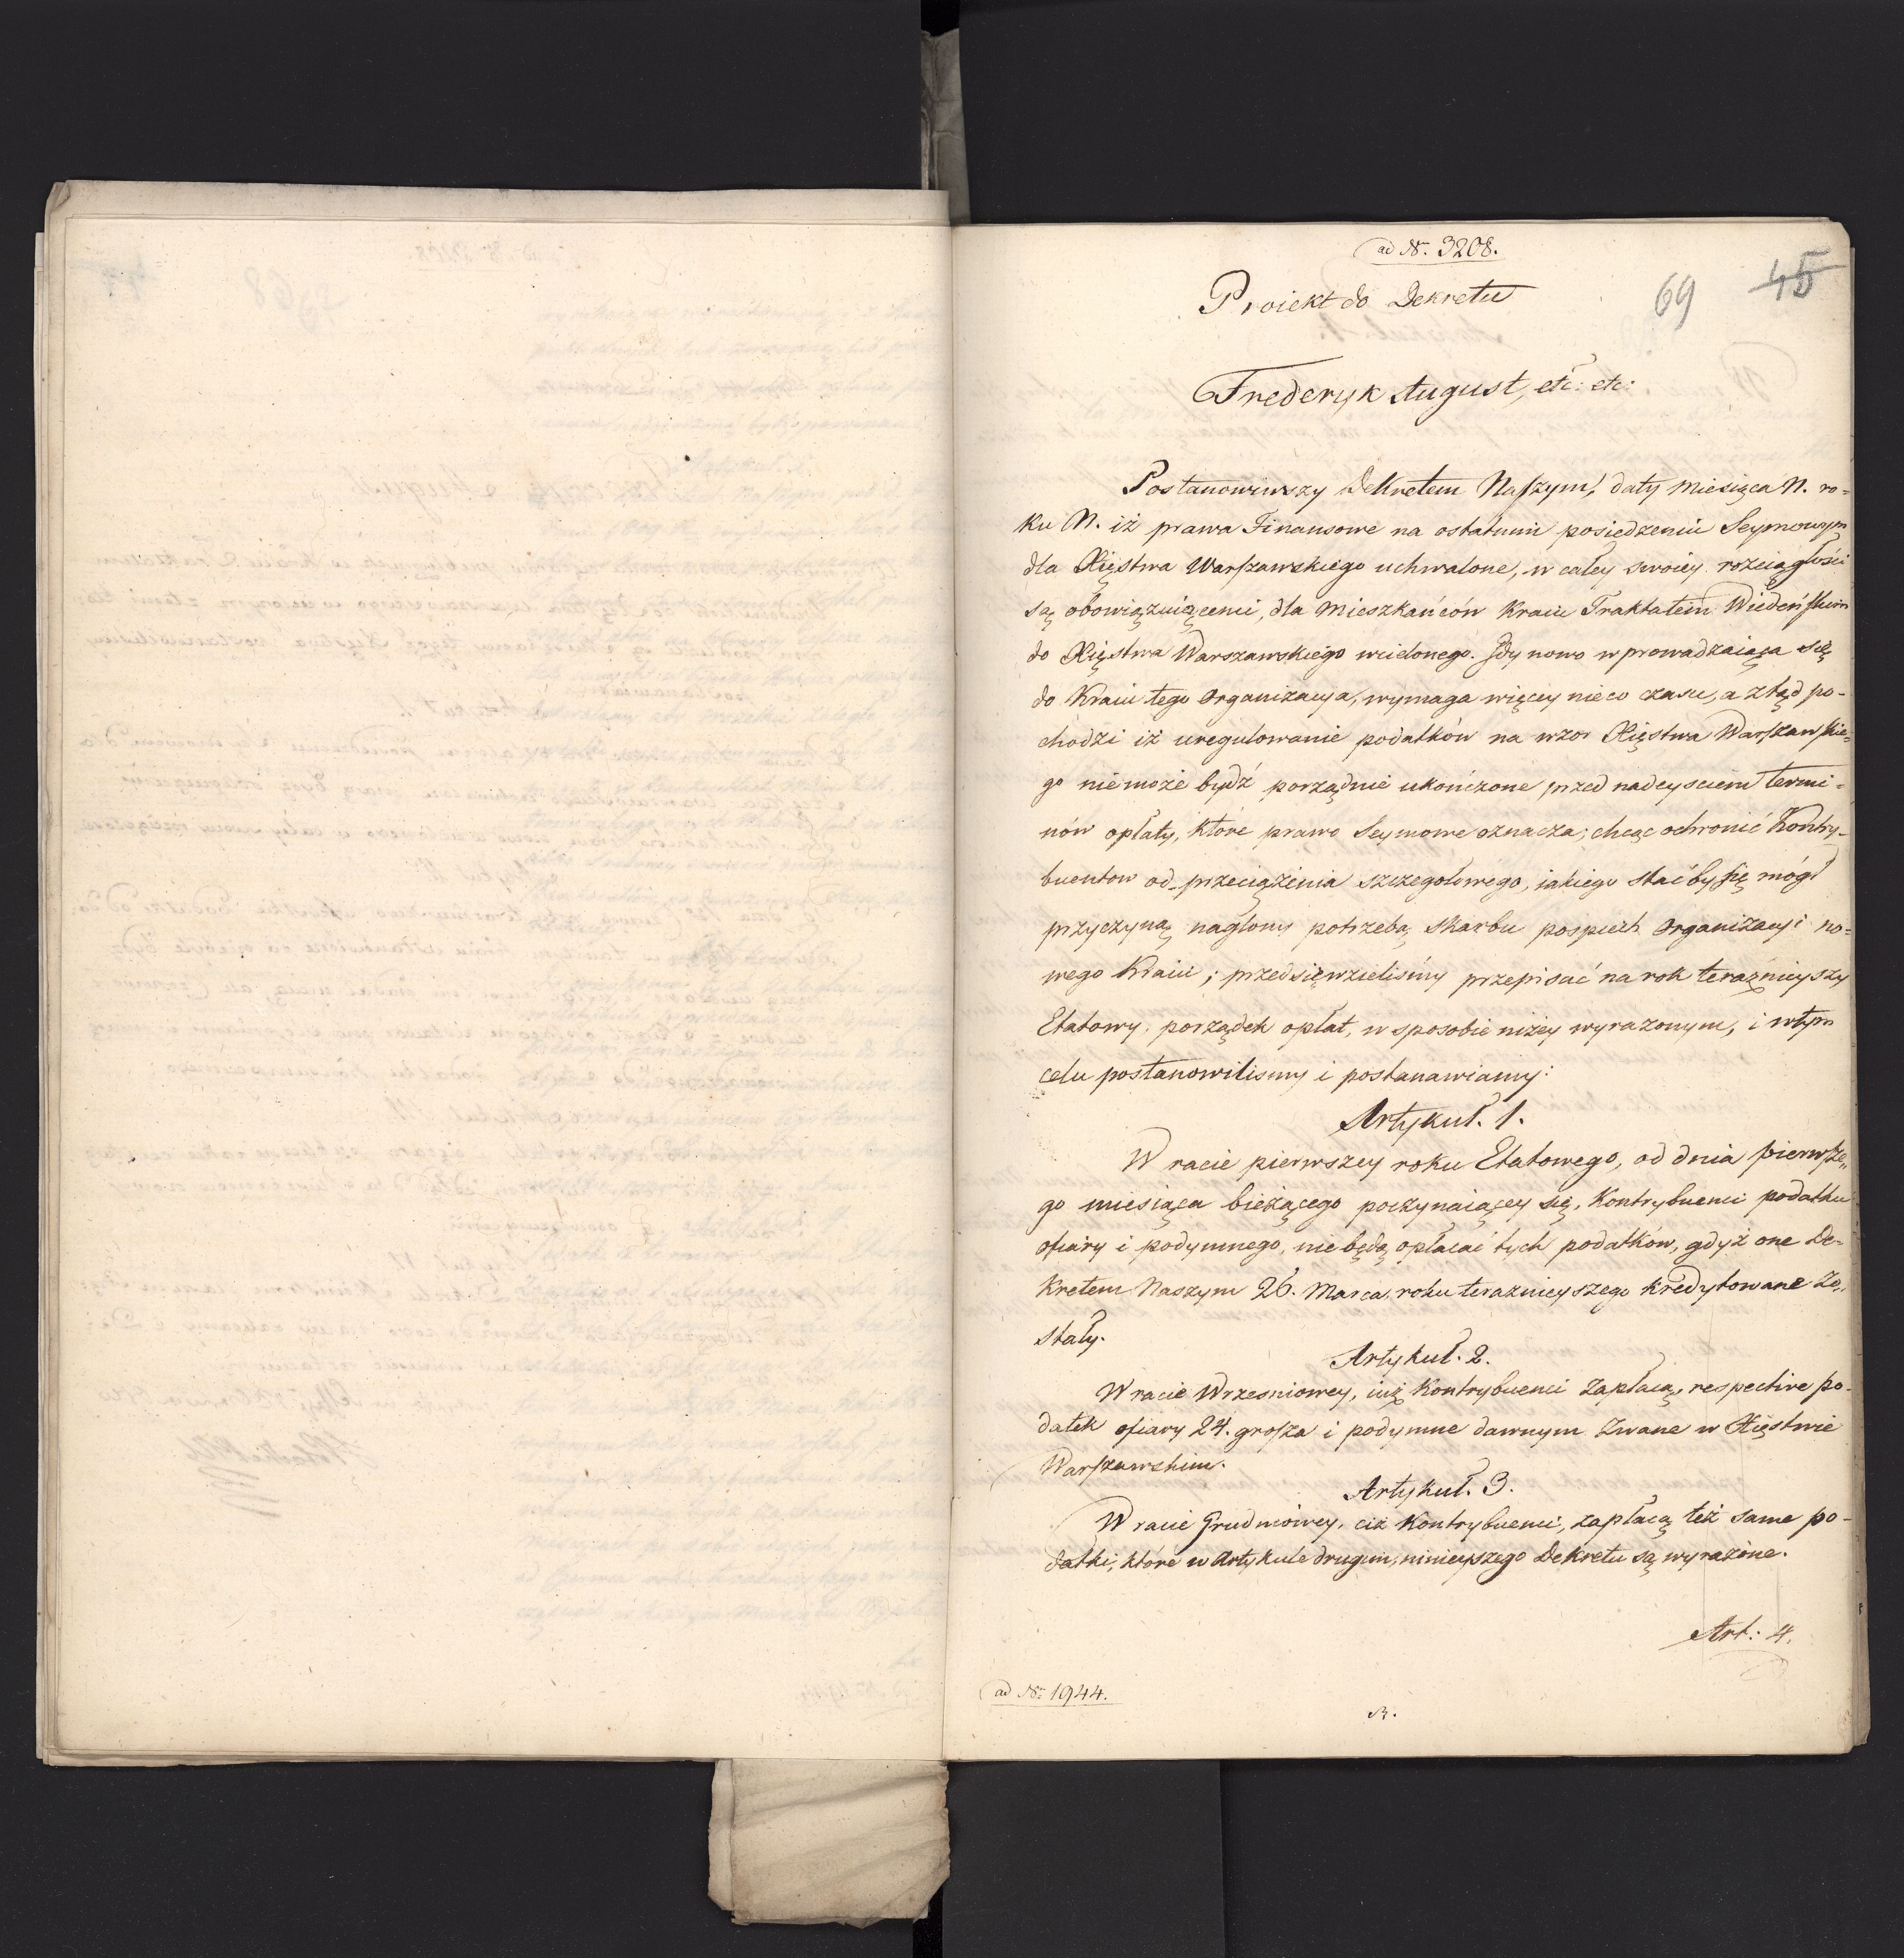 ad Nr. 3208.
Proiekt do Dekretu
69 45
Frederyk August, etc: etc:
Postanowiwszy Dekretem Naszym, daty Miesiąca N. ro=
ku N. iż prawa Finansowe na ostatnim posiedzeniu Seymowym
dla Xięstwa Warszawskiego uchwalone, w całey swoiey rozciągłości
są obowiązuiącemi, dla Mieszkańców Kraiu Traktatem Wiedeńskim
do Xięstwa Warszawskiego wcielonego. Gdy nowo wprowadzaiąca się
do Kraiu tego Organizacya, wymaga więcey nieco czasu, a ztąd po-
chodzi iż uregulowanie podatków na wzor Xięstwa Warszawskie=
go niemoże bydź porządnie ukończone przed nadeysciem termi=
nów opłaty, które prawo Seymowe oznacza; chcąc ochronić Kontry-
buentow od przeciążenia szczegołowego, iakiego stać by się mógł
przyczyną naglony potrzebą Skarbu pospiech Organizacyi no=
wego Kraiu; przedsięwzieliśmy przepisać na rok teraźnieyszy
Etatowy porządek opłat, w sposobie niżey wyrażonym, i wtym
celu postanowilismy i postanawiamy:
Artykuł. 1.
W racie pierwszey roku Etatowego, od dnia pierwsze„
go miesiąca bieżącego poczynaiącey się, Kontrybuenci podatku
ofiary i podymnego, nie będą opłacać tych podatków, gdyż one De=
kretem Naszym 26. Marca roku teraznieyszego kredytowane zo„
stały.
Artykuł. 2.
W racie Wrzesniowey, iuż Kontrybuenci zapłacą, respective po-
datek ofiary 24. grosza i podymne dawnym zwane w Xięstwie
Warszawskim.
Artykuł. 3.
W racie Grudniowey, ciż Kontrybuenci, zapłacą też same po-
datki, które w Artykule drugim, ninieyszego Dekretu są wyrażone.
Art: 4.
ad Nr. 1944.